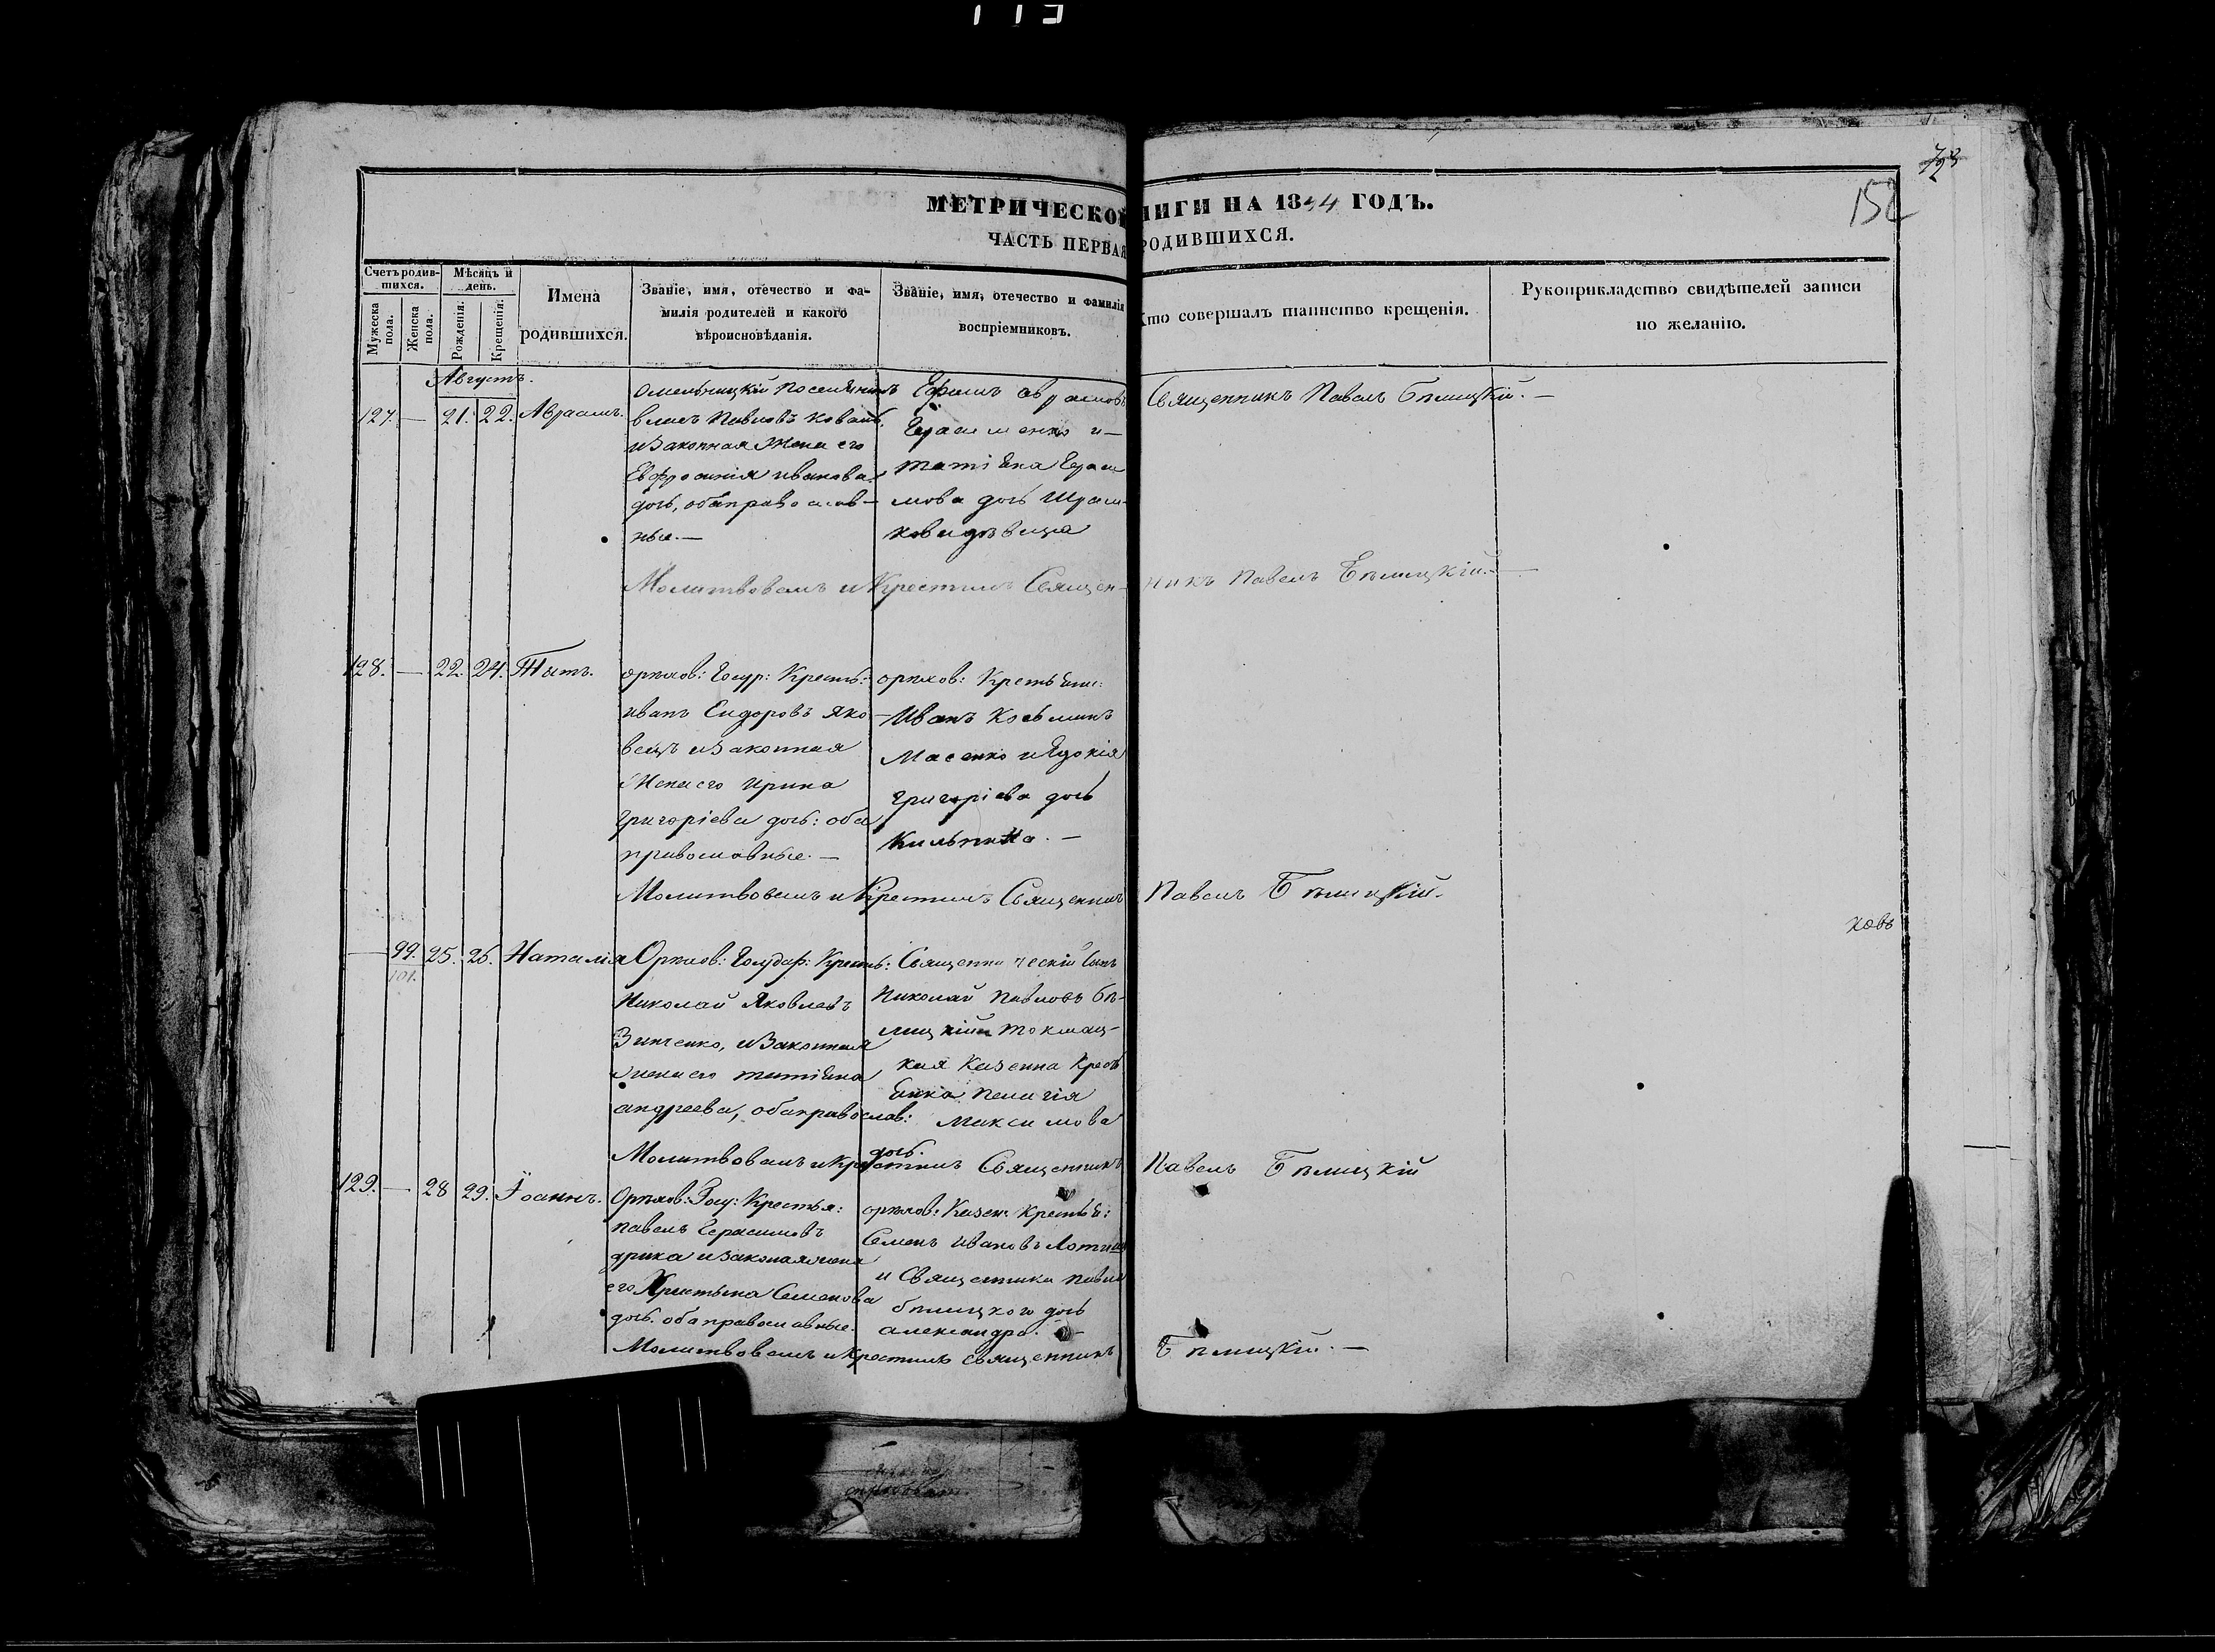 793
152
МЕТРИЧЕСКОЙ НИГИ НА 1844 ГОДЪ.
ЧАСТЬ ПЕРВАЯ РОДИВШИХСЯ.
Счетъ родив-
шихся.
Мужеска пола.
Женска пола.
Мѣсяцъ и день.
Рожденія.
Крещенія.
Имена
родившихся.
Званіе, имя, отечество и фа-
милія родителей и какого
вѣроисповѣданія.
Званіе, имя, отечество и фамилія
воспріемниковъ.
Кто совершалъ таинство крещенія.
Рукоприкладство свидѣтелей записи
по желанію.
Августъ.
127. — 21. 22. Авраамъ.
Омельницкій поселянинъ
Павловъ Коваль,
и законная жена его
Евфросинія иванова
дочь, оба православ-
ные. —
Ефимъ авраамовъ
Герасименко и —
татіана
мова дочь
дѣвица
Священникъ Павелъ Бѣлицкій. —
Молитвовалъ и Крестилъ Священ-никъ Павелъ Бѣлицкій. —
128. — 22. 24. Титъ.
орѣхов: Госур: Кресть:
иванъ Сидоровъ Яко
вецъ и законная
Жена его ирина
григоріева дочь: оба
православные. —
орѣхов: Крестьян:
Иванъ Косьминъ
Масенко и Евдокія
григоріева дочь
. —
Молитвовалъ и Крестилъ Священникъ Павелъ Бѣлицкій.
ковъ
— 99. 25. 26. Наталія
101.
Орѣхов: Государ: Кресть:
Николай Яковлевъ
Зинченко, и законная
жена его татіана
андреева, оба православ:
Священническій сынъ
Николай Павловъ Бѣ-
лицкій и токмац-
кая Казенна Кресть
янка Пелагія
Максимова
дочь.
Молитвовалъ и Крестилъ Священникъ Павелъ Бѣлицкій
129. — 28 29. Іоаннъ.
Орѣхов: Госу: Крестья:
павелъ Герасимовъ
и законая жена
его Христина Семенова
дочь. оба православные.
орѣхов: Казен: Крестья:
Семенъ ивановъ
и Священника павла
бѣлицкого дочь
александра. —
Молитвовалъ и Крестилъ священникъ Бѣлицкій. —